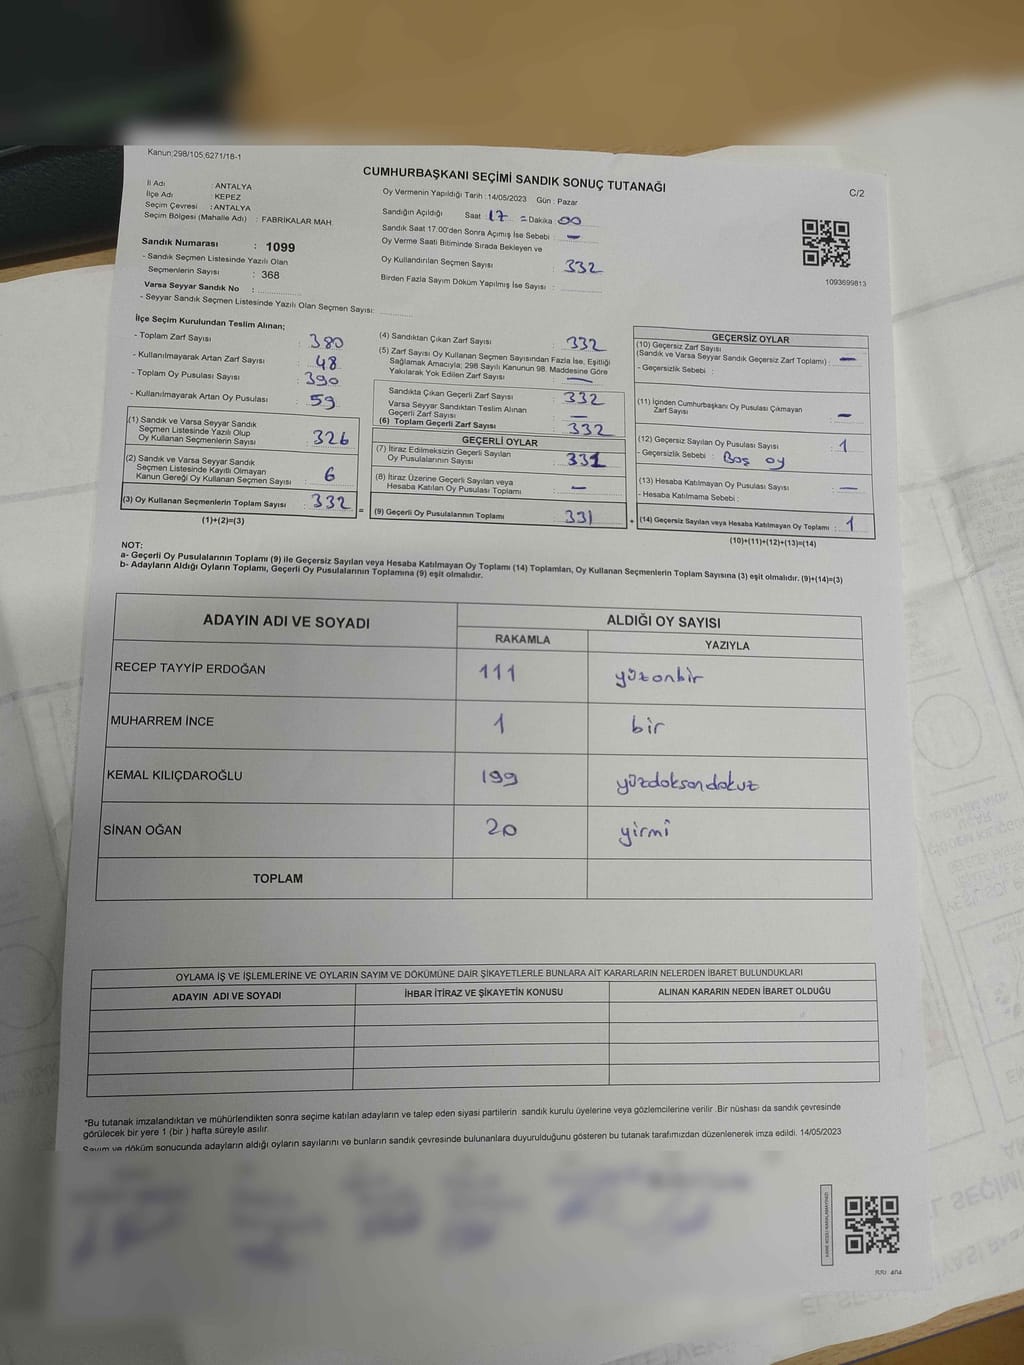 Kanun;298/105,6271/18-1
CUMHURBAŞKANI SEÇİMİ SANDIK SONUÇ TUTANAĞI
C/2
İl Adı : ANTALYA
İlçe Adı : KEPEZ
Seçim Çevresi : ANTALYA
Seçim Bölgesi (Mahalle Adı) : FABRİKALAR MAH.
Oy Vermenin Yapıldığı Tarih :14/05/2023 Gün : Pazar
Sandığın Açıldığı Saat : 17 = Dakika : 00
Sandık Saat 17.00'den Sonra Açımış İse Sebebi : —
Oy Verme Saati Bitiminde Sırada Bekleyen ve
Oy Kullandırılan Seçmen Sayısı : 332
Birden Fazla Sayım Döküm Yapılmış İse Sayısı :
1093699813
Sandık Numarası : 1099
- Sandık Seçmen Listesinde Yazılı Olan
Seçmenlerin Sayısı : 368
Varsa Seyyar Sandık No :
- Seyyar Sandık Seçmen Listesinde Yazılı Olan Seçmen Sayısı:
İlçe Seçim Kurulundan Teslim Alınan;
- Toplam Zarf Sayısı : 380
- Kullanılmayarak Artan Zarf Sayısı : 48
- Toplam Oy Pusulası Sayısı : 390
- Kullanılmayarak Artan Oy Pusulası : 59
(1) Sandık ve Varsa Seyyar Sandık
Seçmen Listesinde Yazılı Olup
Oy Kullanan Seçmenlerin Sayısı : 326
(2) Sandık ve Varsa Seyyar Sandık
Seçmen Listesinde Kayıtlı Olmayan
Kanun Gereği Oy Kullanan Seçmen Sayısı : 6
(3) Oy Kullanan Seçmenlerin Toplam Sayısı : 332
(1)+(2)=(3)
(4) Sandıktan Çıkan Zarf Sayısı : 332
(5) Zarf Sayısı Oy Kullanan Seçmen Sayısından Fazla İse, Eşitliği
Sağlamak Amacıyla; 298 Sayılı Kanunun 98. Maddesine Göre
Yakılarak Yok Edilen Zarf Sayısı : —
Sandıkta Çıkan Geçerli Zarf Sayısı : 332
Varsa Seyyar Sandıktan Teslim Alınan
Geçerli Zarf Sayısı : —
(6) Toplam Geçerli Zarf Sayısı : 332
GEÇERLİ OYLAR
(7) İtiraz Edilmeksizin Geçerli Sayılan
Oy Pusulalarının Sayısı : 331
(8) İtiraz Üzerine Geçerli Sayılan veya
Hesaba Katılan Oy Pusulası Toplamı : —
= (9) Geçerli Oy Pusulalarının Toplamı : 331
GEÇERSİZ OYLAR
(10) Geçersiz Zarf Sayısı
(Sandık ve Varsa Seyyar Sandık Geçersiz Zarf Toplamı) : —
- Geçersizlik Sebebi :
(11) İçinden Cumhurbaşkanı Oy Pusulası Çıkmayan
Zarf Sayısı : —
(12) Geçersiz Sayılan Oy Pusulası Sayısı : 1
- Geçersizlik Sebebi : Boş oy
(13) Hesaba Katılmayan Oy Pusulası Sayısı : —
- Hesaba Katılmama Sebebi :
+ (14) Geçersiz Sayılan veya Hesaba Katılmayan Oy Toplamı : 1
(10)+(11)+(12)+(13)=(14)
NOT:
a- Geçerli Oy Pusulalarının Toplamı (9) ile Geçersiz Sayılan veya Hesaba Katılmayan Oy Toplamı (14) Toplamları, Oy Kullanan Seçmenlerin Toplam Sayısına (3) eşit olmalıdır. (9)+(14)=(3)
b- Adayların Aldığı Oyların Toplamı, Geçerli Oy Pusulalarının Toplamına (9) eşit olmalıdır.
ADAYIN ADI VE SOYADI
ALDIĞI OY SAYISI
RAKAMLA
YAZIYLA
RECEP TAYYİP ERDOĞAN 111 yüzonbir
MUHARREM İNCE 1 bir
KEMAL KILIÇDAROĞLU 199 yüzdoksandokuz
SİNAN OĞAN 20 yirmi
TOPLAM
OYLAMA İŞ VE İŞLEMLERİNE VE OYLARIN SAYIM VE DÖKÜMÜNE DAİR ŞİKAYETLERLE BUNLARA AİT KARARLARIN NELERDEN İBARET BULUNDUKLARI
ADAYIN ADI VE SOYADI
İHBAR İTİRAZ VE ŞİKAYETİN KONUSU
ALINAN KARARIN NEDEN İBARET OLDUĞU
*Bu tutanak imzalandıktan ve mühürlendikten sonra seçime katılan adayların ve talep eden siyasi partilerin sandık kurulu üyelerine veya gözlemcilerine verilir .Bir nüshası da sandık çevresinde
görülecek bir yere 1 (bir ) hafta süreyle asılır.
Sayım ve döküm sonucunda adayların aldığı oyların sayılarını ve bunların sandık çevresinde bulunanlara duyurulduğunu gösteren bu tutanak tarafımızdan düzenlenerek imza edildi. 14/05/2023